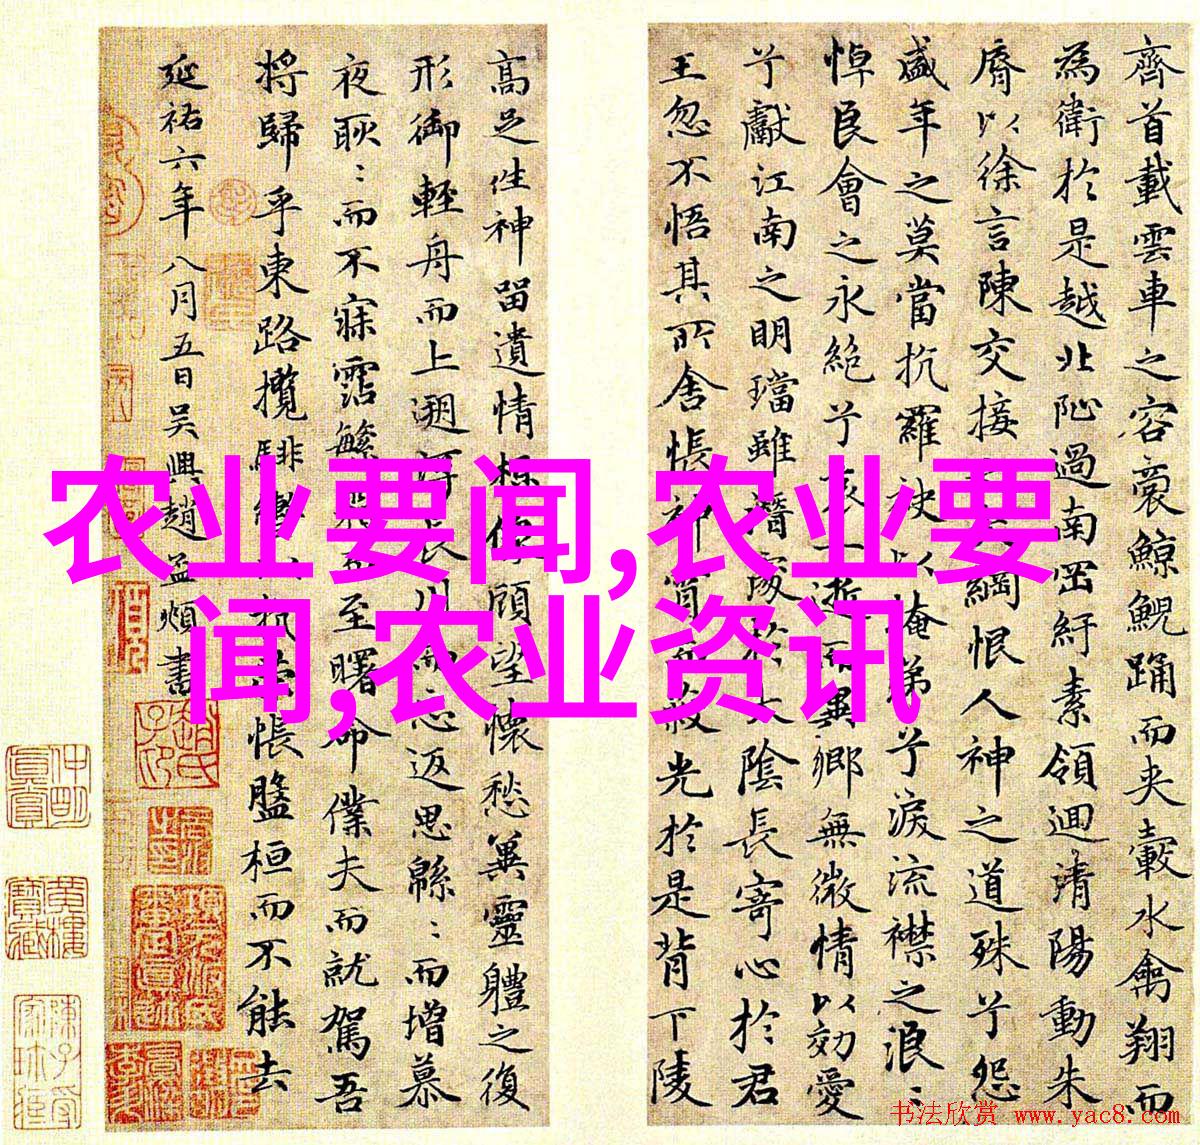 齊首載雲車之容裔鯨鯢踊而夾轂水禽翔而
為衛於是越北沚過南岡紆素領迴清陽動朱
脣以徐言陳交接之大綱恨人神之道殊兮怨
盛年之莫當抗羅袂以掩涕兮淚流襟之浪〻
悼良會之永絕兮哀一逝而異鄉無微情以効愛
兮獻江南之明璫雖潛處於太陰長寄心於君
王忽不悟其所舍悵神宵而蔽光於是背下陵
高足往神留遺情想像顧望懷愁冀靈體之復
形御輕舟而上遡浮長川而忘返思緜〻而增慕
夜耿〻而不寐霑繁霜而至曙命僕夫而就駕吾
將歸乎東路攬騑轡以抗策悵盤桓而不能去
延祐六年八月五日吳興趙孟頫書
农业要闻,农业要
闻,农业资讯
书法欣赏 www.yac8.com